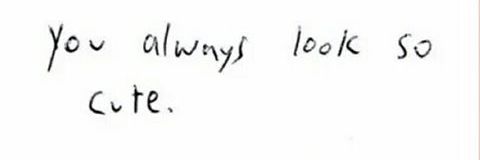 You always look so
cute.